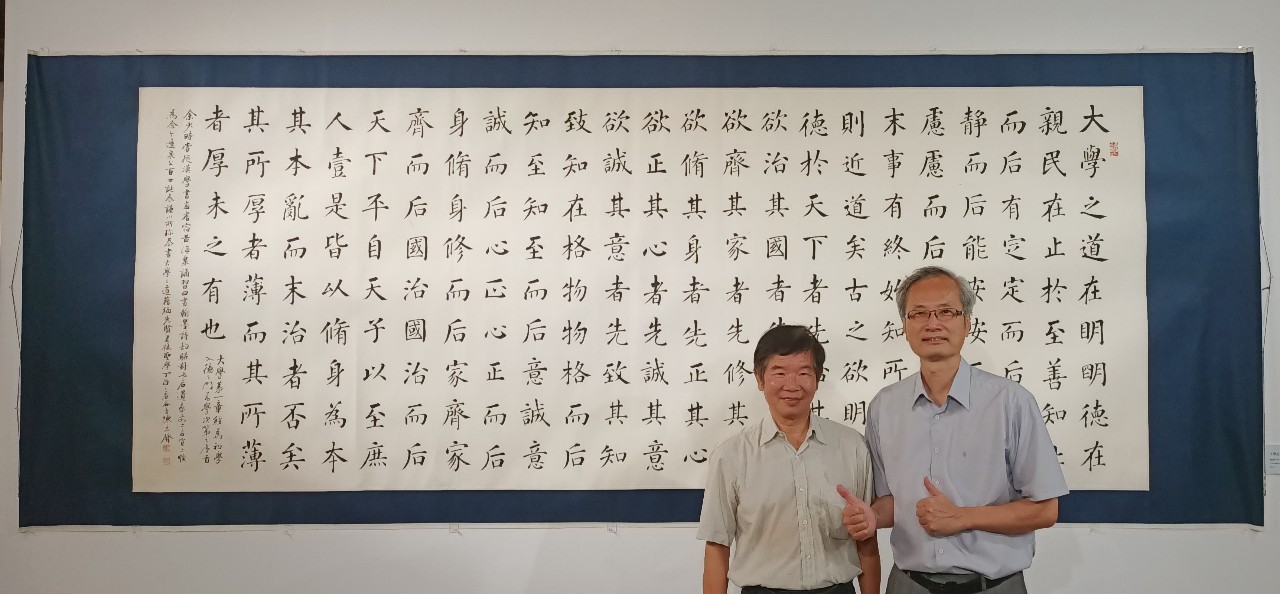 大學之道在明明德在
親民在止於至善知
而后有定定而后
静而后能安安
慮慮而后
末事有終始知所
則近道矣古之欲明
德於天下者先
欲治其國者
欲齊其家者先修其
欲脩其身者先正其心
欲正其心者先誠其意
欲誠其意者先致其知
致知在格物物格而后
知至知至而后意誠意
誠而后心正心正而后
身脩身修而后家齊家
齊而后國治國治而后
天下平自天子以至庶
人壹是皆以脩身為本
其本亂而末治者否矣
其所厚者薄而其所薄
者厚未之有也
大學第一章經為初學
入德之門為學次第之序
余少時嘗從漢學書